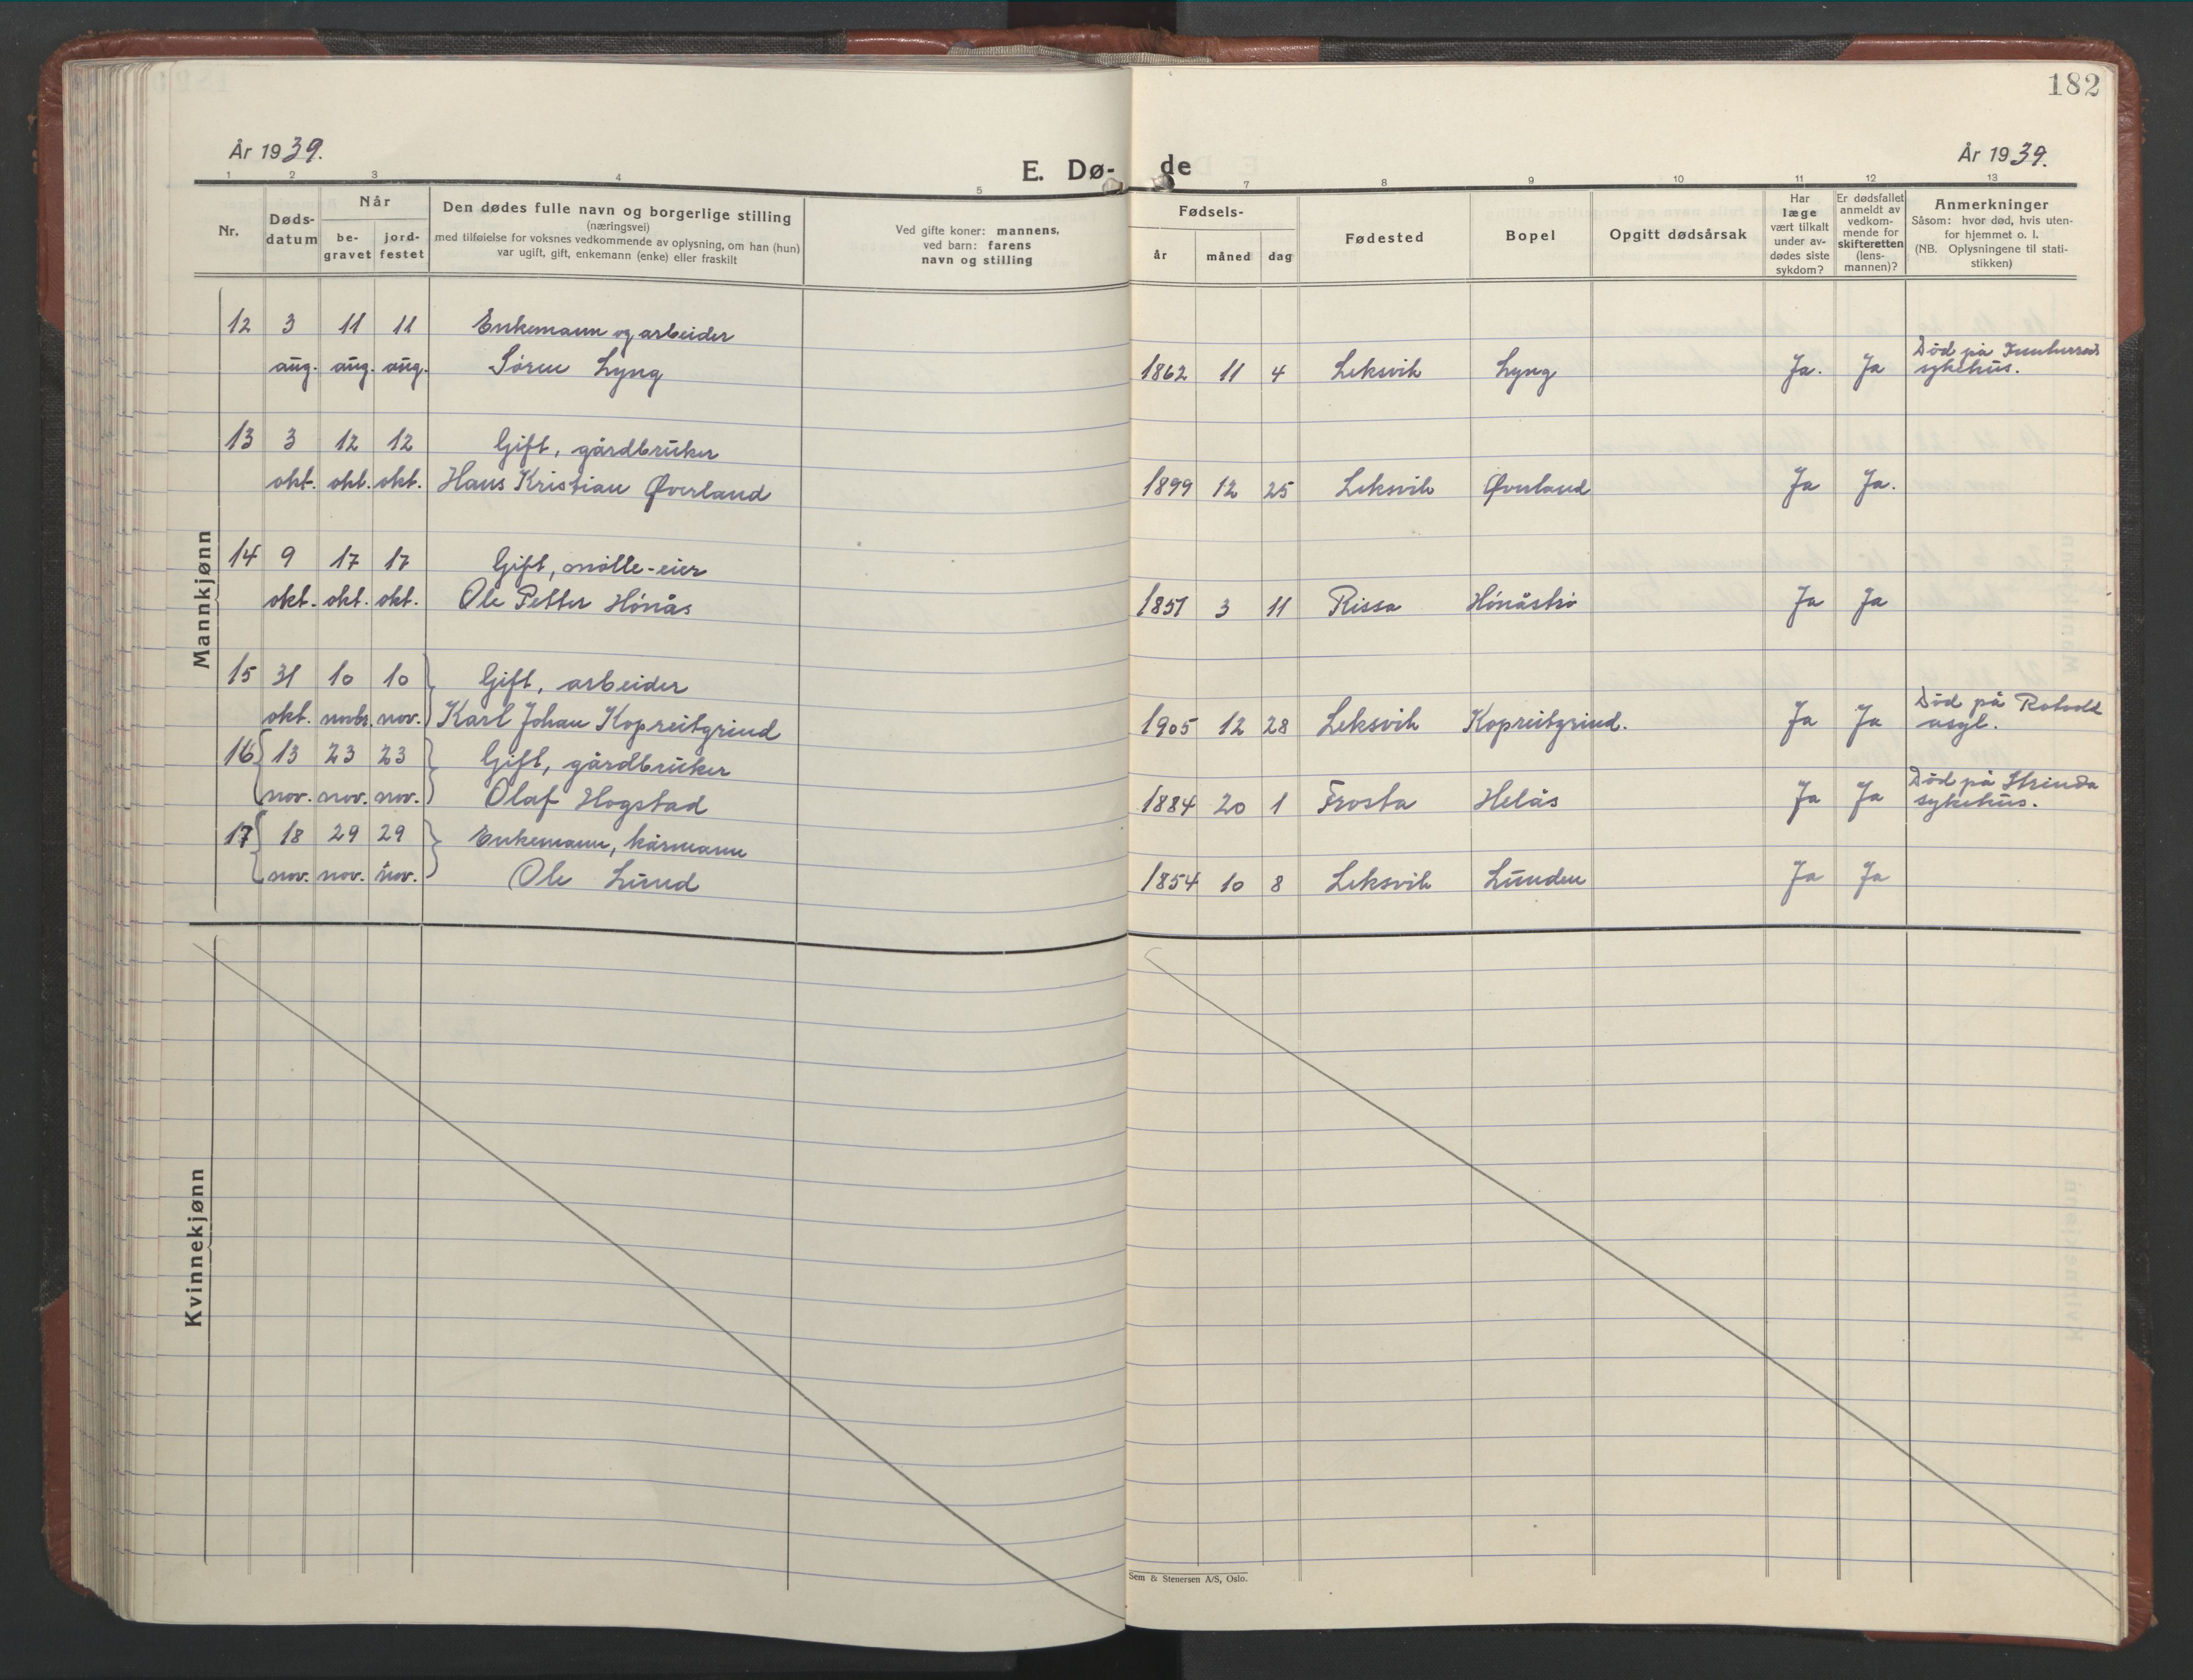 182
År 1939.
E. Dø-de
År 1939.
1 2 3 4 5 7 8 9 10 11 12 13
Nr.
Døds-
datum
Når
be-
gravet
jord-
festet
Den dødes fulle navn og borgerlige stilling
(næringsvei)
med tilføielse for voksnes vedkommende av oplysning, om han (hun)
var ugift, gift, enkemann (enke) eller fraskilt
Ved gifte koner: mannens,
ved barn: farens
navn og stilling
Fødsels-
år
måned
dag
Fødested
Bopel
Opgitt dødsårsak
Har
læge
vært tilkalt
under av-
dødes siste
sykdom?
Er dødsfallet
anmeldt av
vedkom-
mende for
skifteretten
(lens-
mannen)?
Anmerkninger
Såsom: hvor død, hvis uten-
for hjemmet o. l.
(NB. Oplysningene til stati-
stikken)
Mannkjønn
12 3 11 11 Enkemann og arbeider
aug. aug. aug. Søren Lyng 1862 11 4 Leksvik Lyng Ja. Ja Død på Innherred
sykehus.
13 3 12 12 Gift, gårdbruker
okt. okt. okt. Hans Kristian Øverland 1899 12 25 Leksvik Øverland Ja Ja.
14 9 17 17 Gift, mølle-eier
okt. okt. okt. Ole Petter Hønås 1851 3 11 Rissa Ja Ja
15 31 10 10 Gift, arbeider
okt. novbr. nov. Karl Johan Kopreitgrind 1905 12 28 Leksvik Kopreitgrind. Ja Ja Død på Rotvoll
asyl.
16 13 23 23 Gift, gårdbruker
nov. nov. nov. Olaf Hogstad 1884 20 1 Frosta Helås Ja Ja Død på Strinda
sykehus.
17 18 29 29 Enkemann, kårmann
nov. nov. nov. Ole Lund 1854 10 8 Leksvik Lunden Ja Ja
Kvinnekjønn
Sem & Stenersen A/S, Oslo.